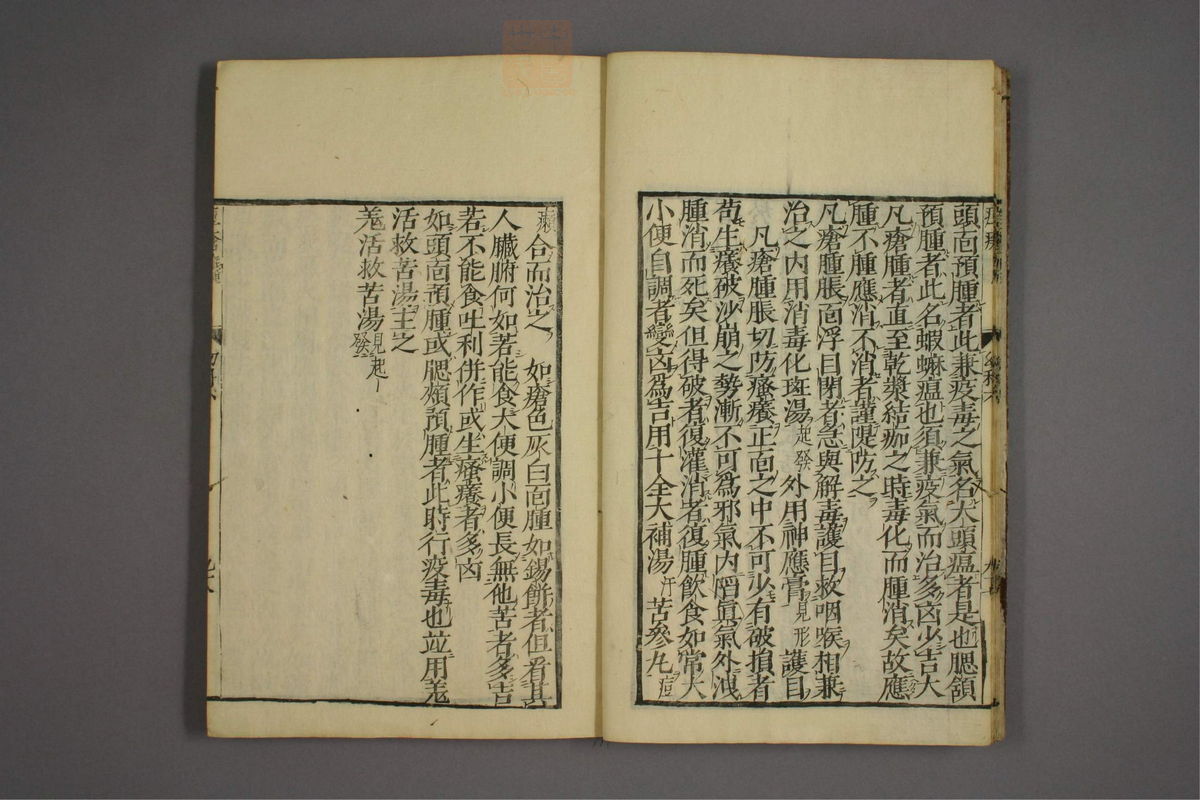 頭面預腫者此兼疫毒之氣名大頭瘟者是也腮頷
預腫者此名蝦蟆瘟也須兼疫氣而治多凶少吉大
凡瘡腫者直至乾漿結痂之時毒化而腫消矣故應
腫不腫應消不消者謹隄防之
凡瘡腫脹面浮目閉者急與解毒護目救咽喉相兼
治之内用消毒化斑湯起發外用神應膏見形護目
凡瘡腫脹切防瘙癢正面之中不可少有破損者
苟生癢破沙崩之勢漸不可為邪氣内䧟眞氣外洩
腫消而死矣但得破者復灌消者復腫飲食如常大
小便自調者變凶爲吉用十全大補湯汗苦參丸痘
癩合而治之　如瘡色灰白面腫如錫餅者但看其
人臟腑何如若能食大便調小便長無他苦者多吉
若不能食吐利併作或生瘙癢者多凶
如頭面預腫或腮頰預腫者此時行疫毒也並用羗
活救苦湯主之
羗活救苦湯見起發